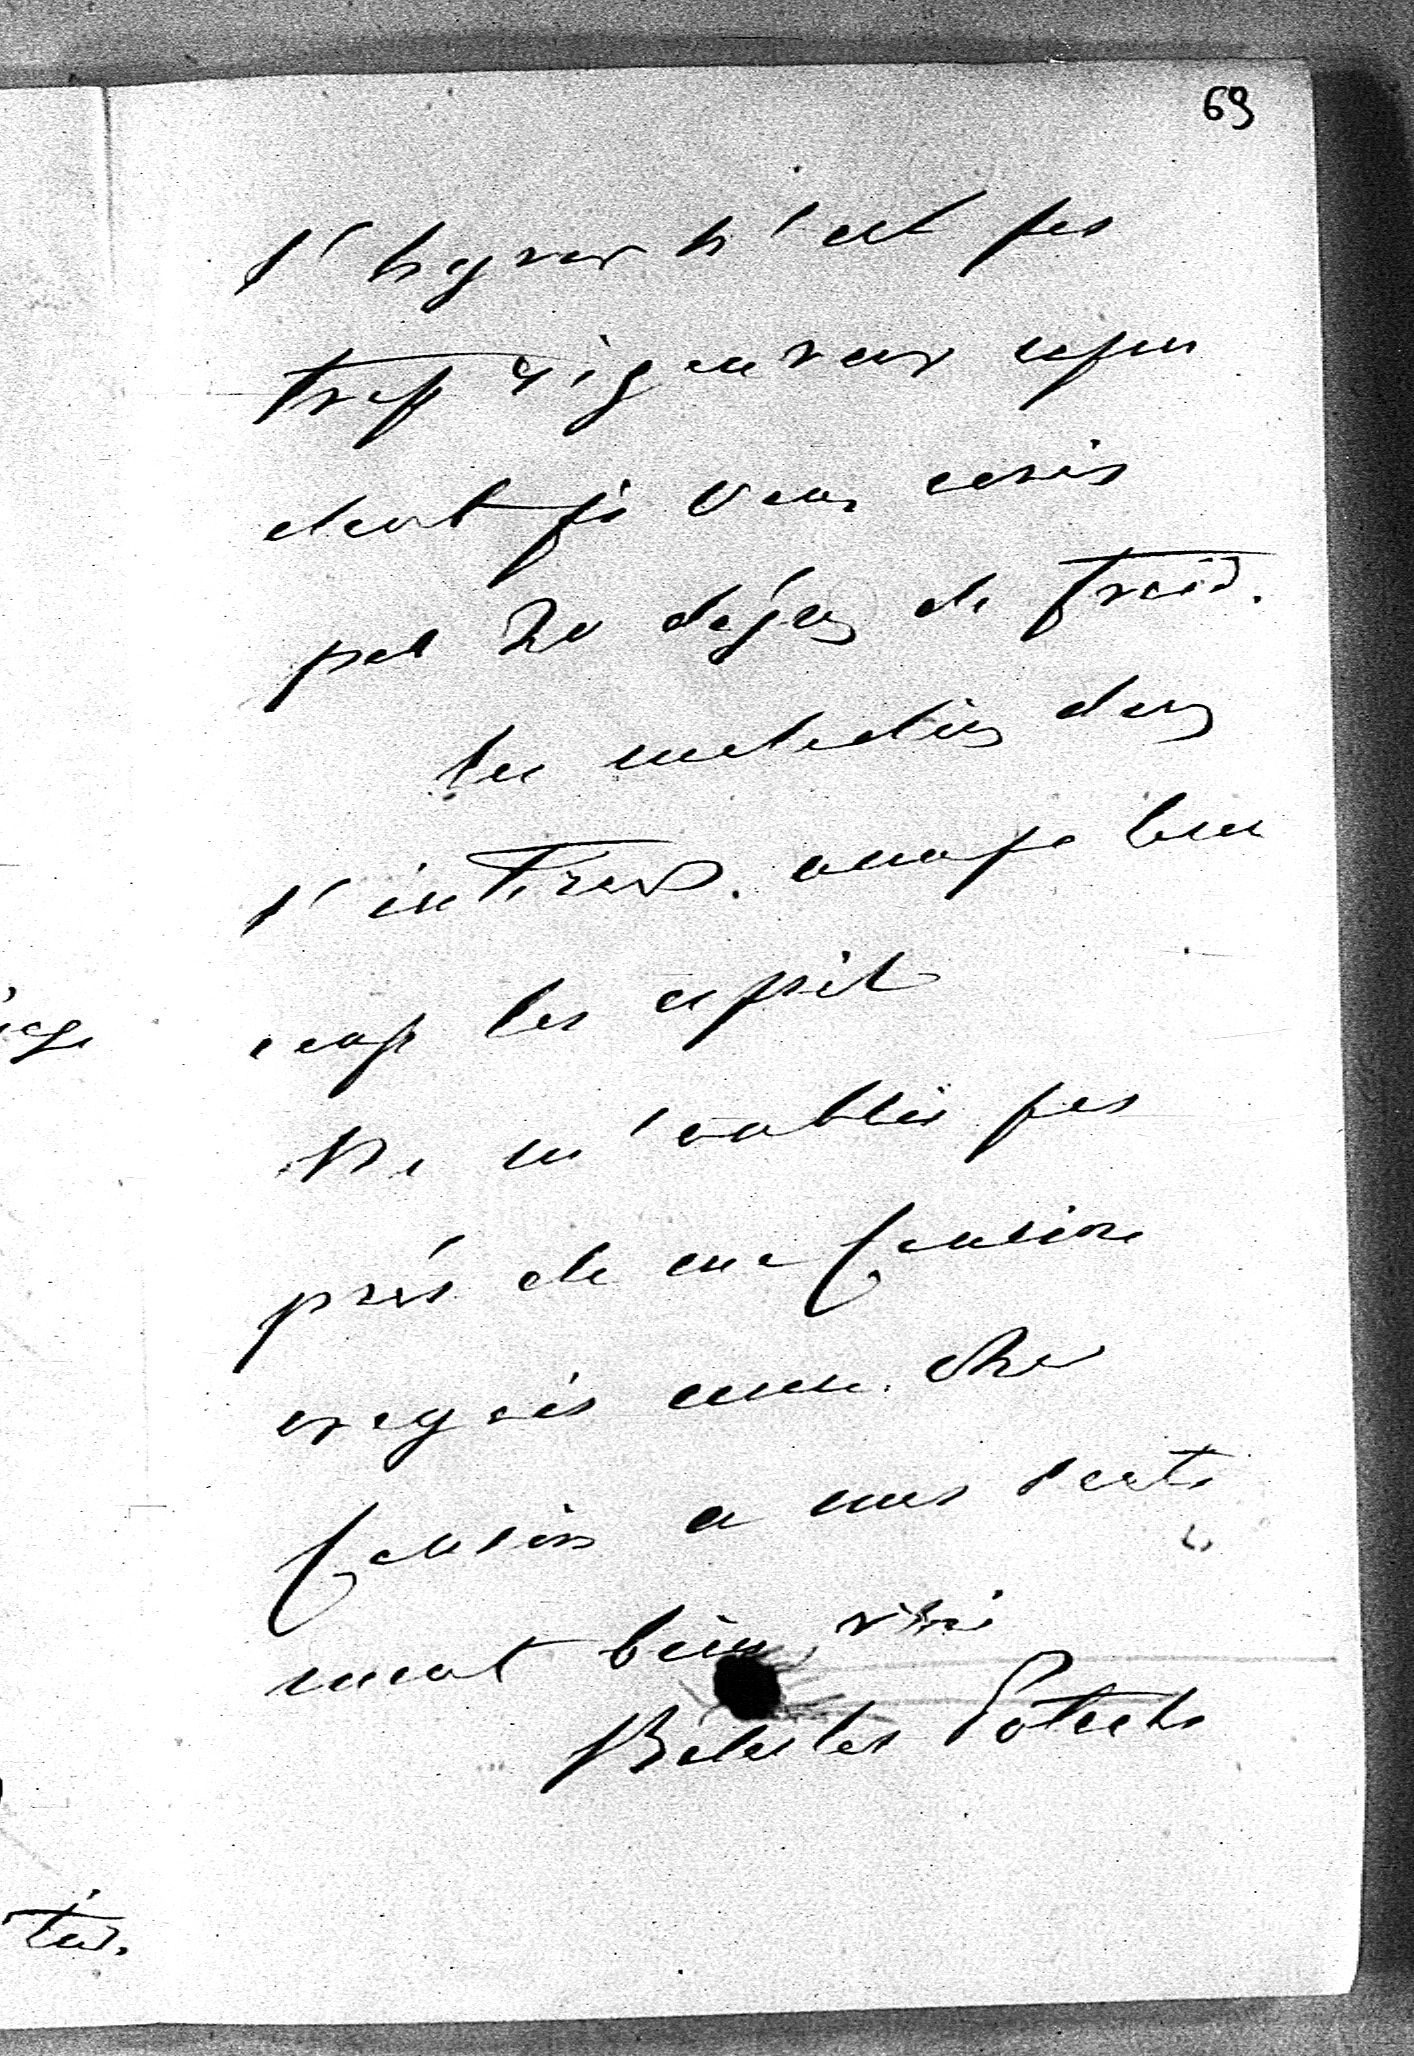 69
l'hyver n'est pas
trop rigoureux cepen
dant je vous ecris
par 20 degres de froid.
les maladies dans
l'interieur. occupe beau
coup les esprit
Ne m'oublies pas
près de ma Cousine
croyés mon cher
Cousin a mes senti
ment bien vrai
Potocki